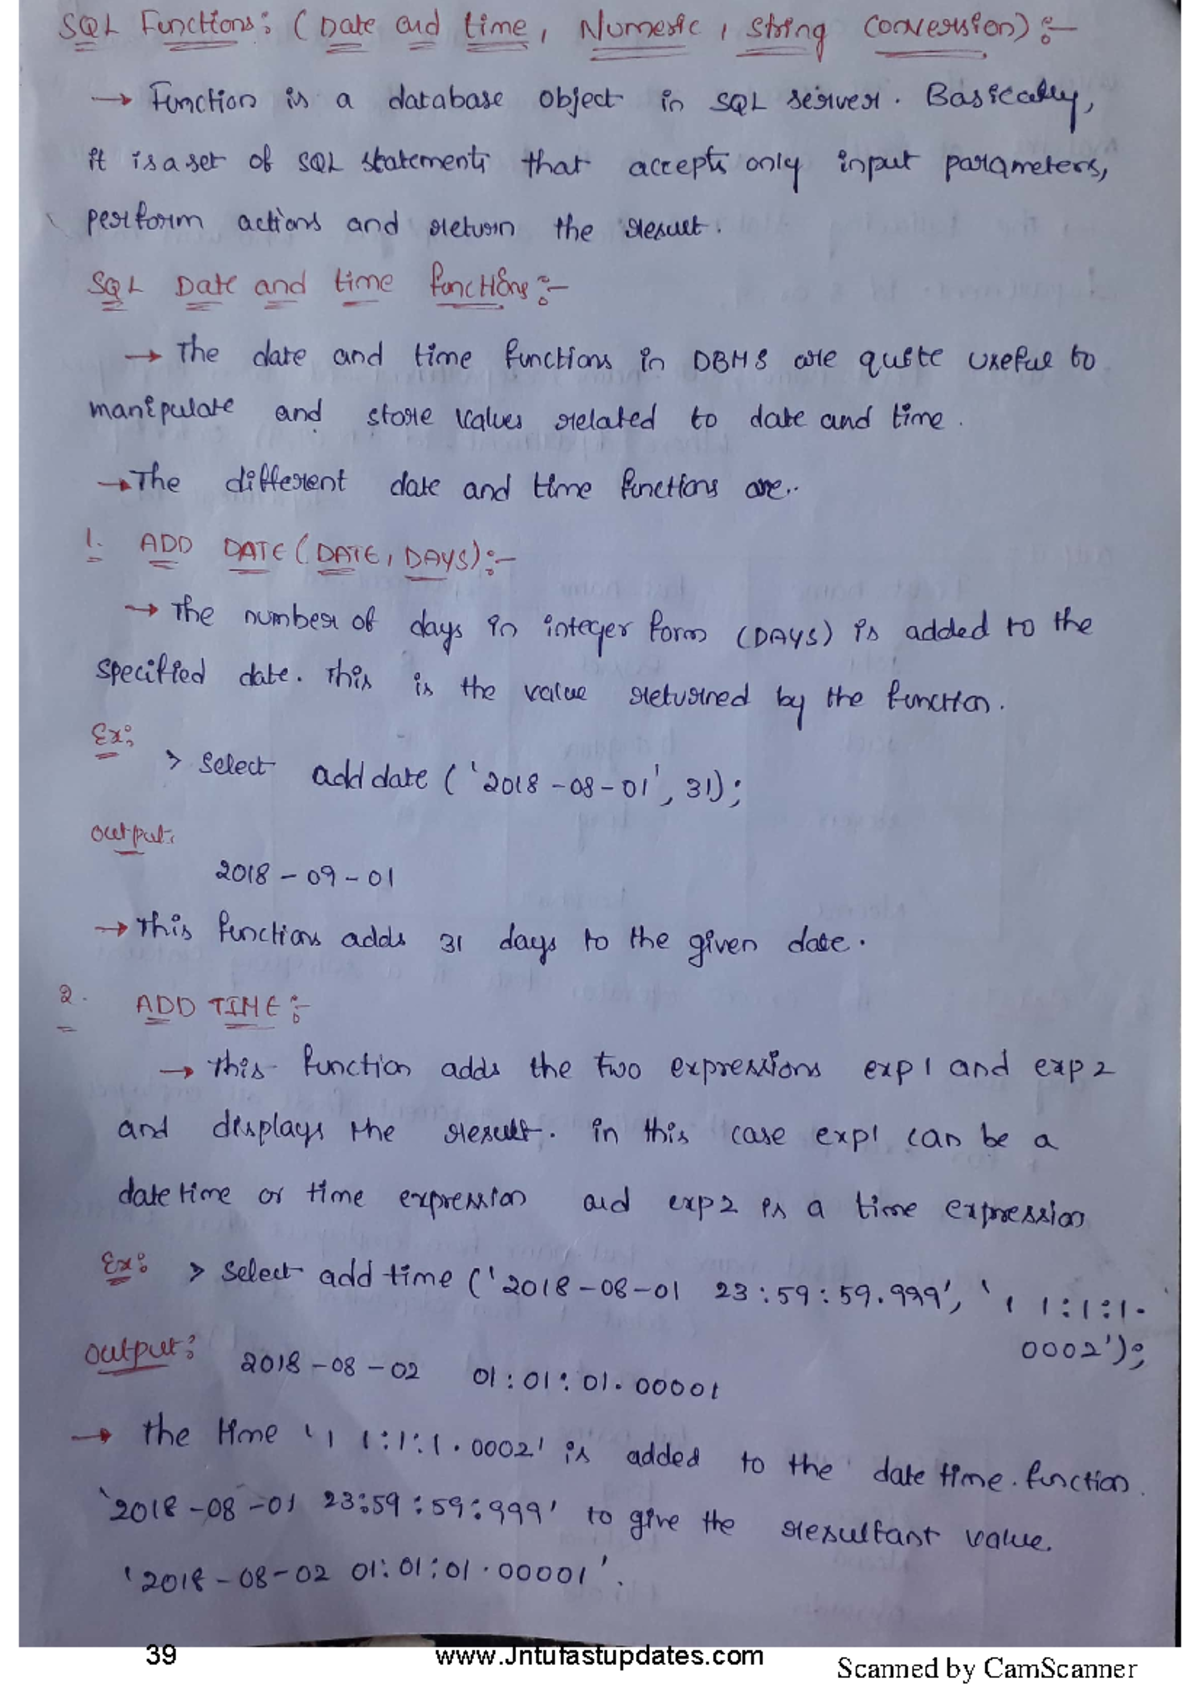 SQL Functions: (Date and time, Numeric, string conversion):-
→ Function is a database object in SQL server. Basically,
it is a set of SQL statements that accepts only input parameters,
perform actions and return the result.
SQL Date and time functions:-
→ The date and time functions in DBMS are quite useful to
manipulate and store values related to date and time.
→ The different date and time functions are..
1. ADD DATE (DATE, DAYS):-
→ The number of days in integer form (DAYS) is added to the
specified date. This is the value returned by the function.
Ex:
> Select add date ('2018-08-01', 31);
output:
2018-09-01
→ This functions adds 31 days to the given date.
2. ADD TIME:-
→ This function adds the two expressions exp1 and exp2
and displays the result. in this case exp1 can be a
date time or time expression and exp2 is a time expression
Ex: > Select add time ('2018-08-01 23:59:59.999', '1 1:1:1.
0002');
output: 2018-08-02 01:01:01.00001
→ the time '1 1:1:1.0002' is added to the date time function.
'2018-08-01 23:59:59:999' to give the resultant value.
'2018-08-02 01:01:01.00001'.
39 www.Jntufastupdates.com
Scanned by CamScanner